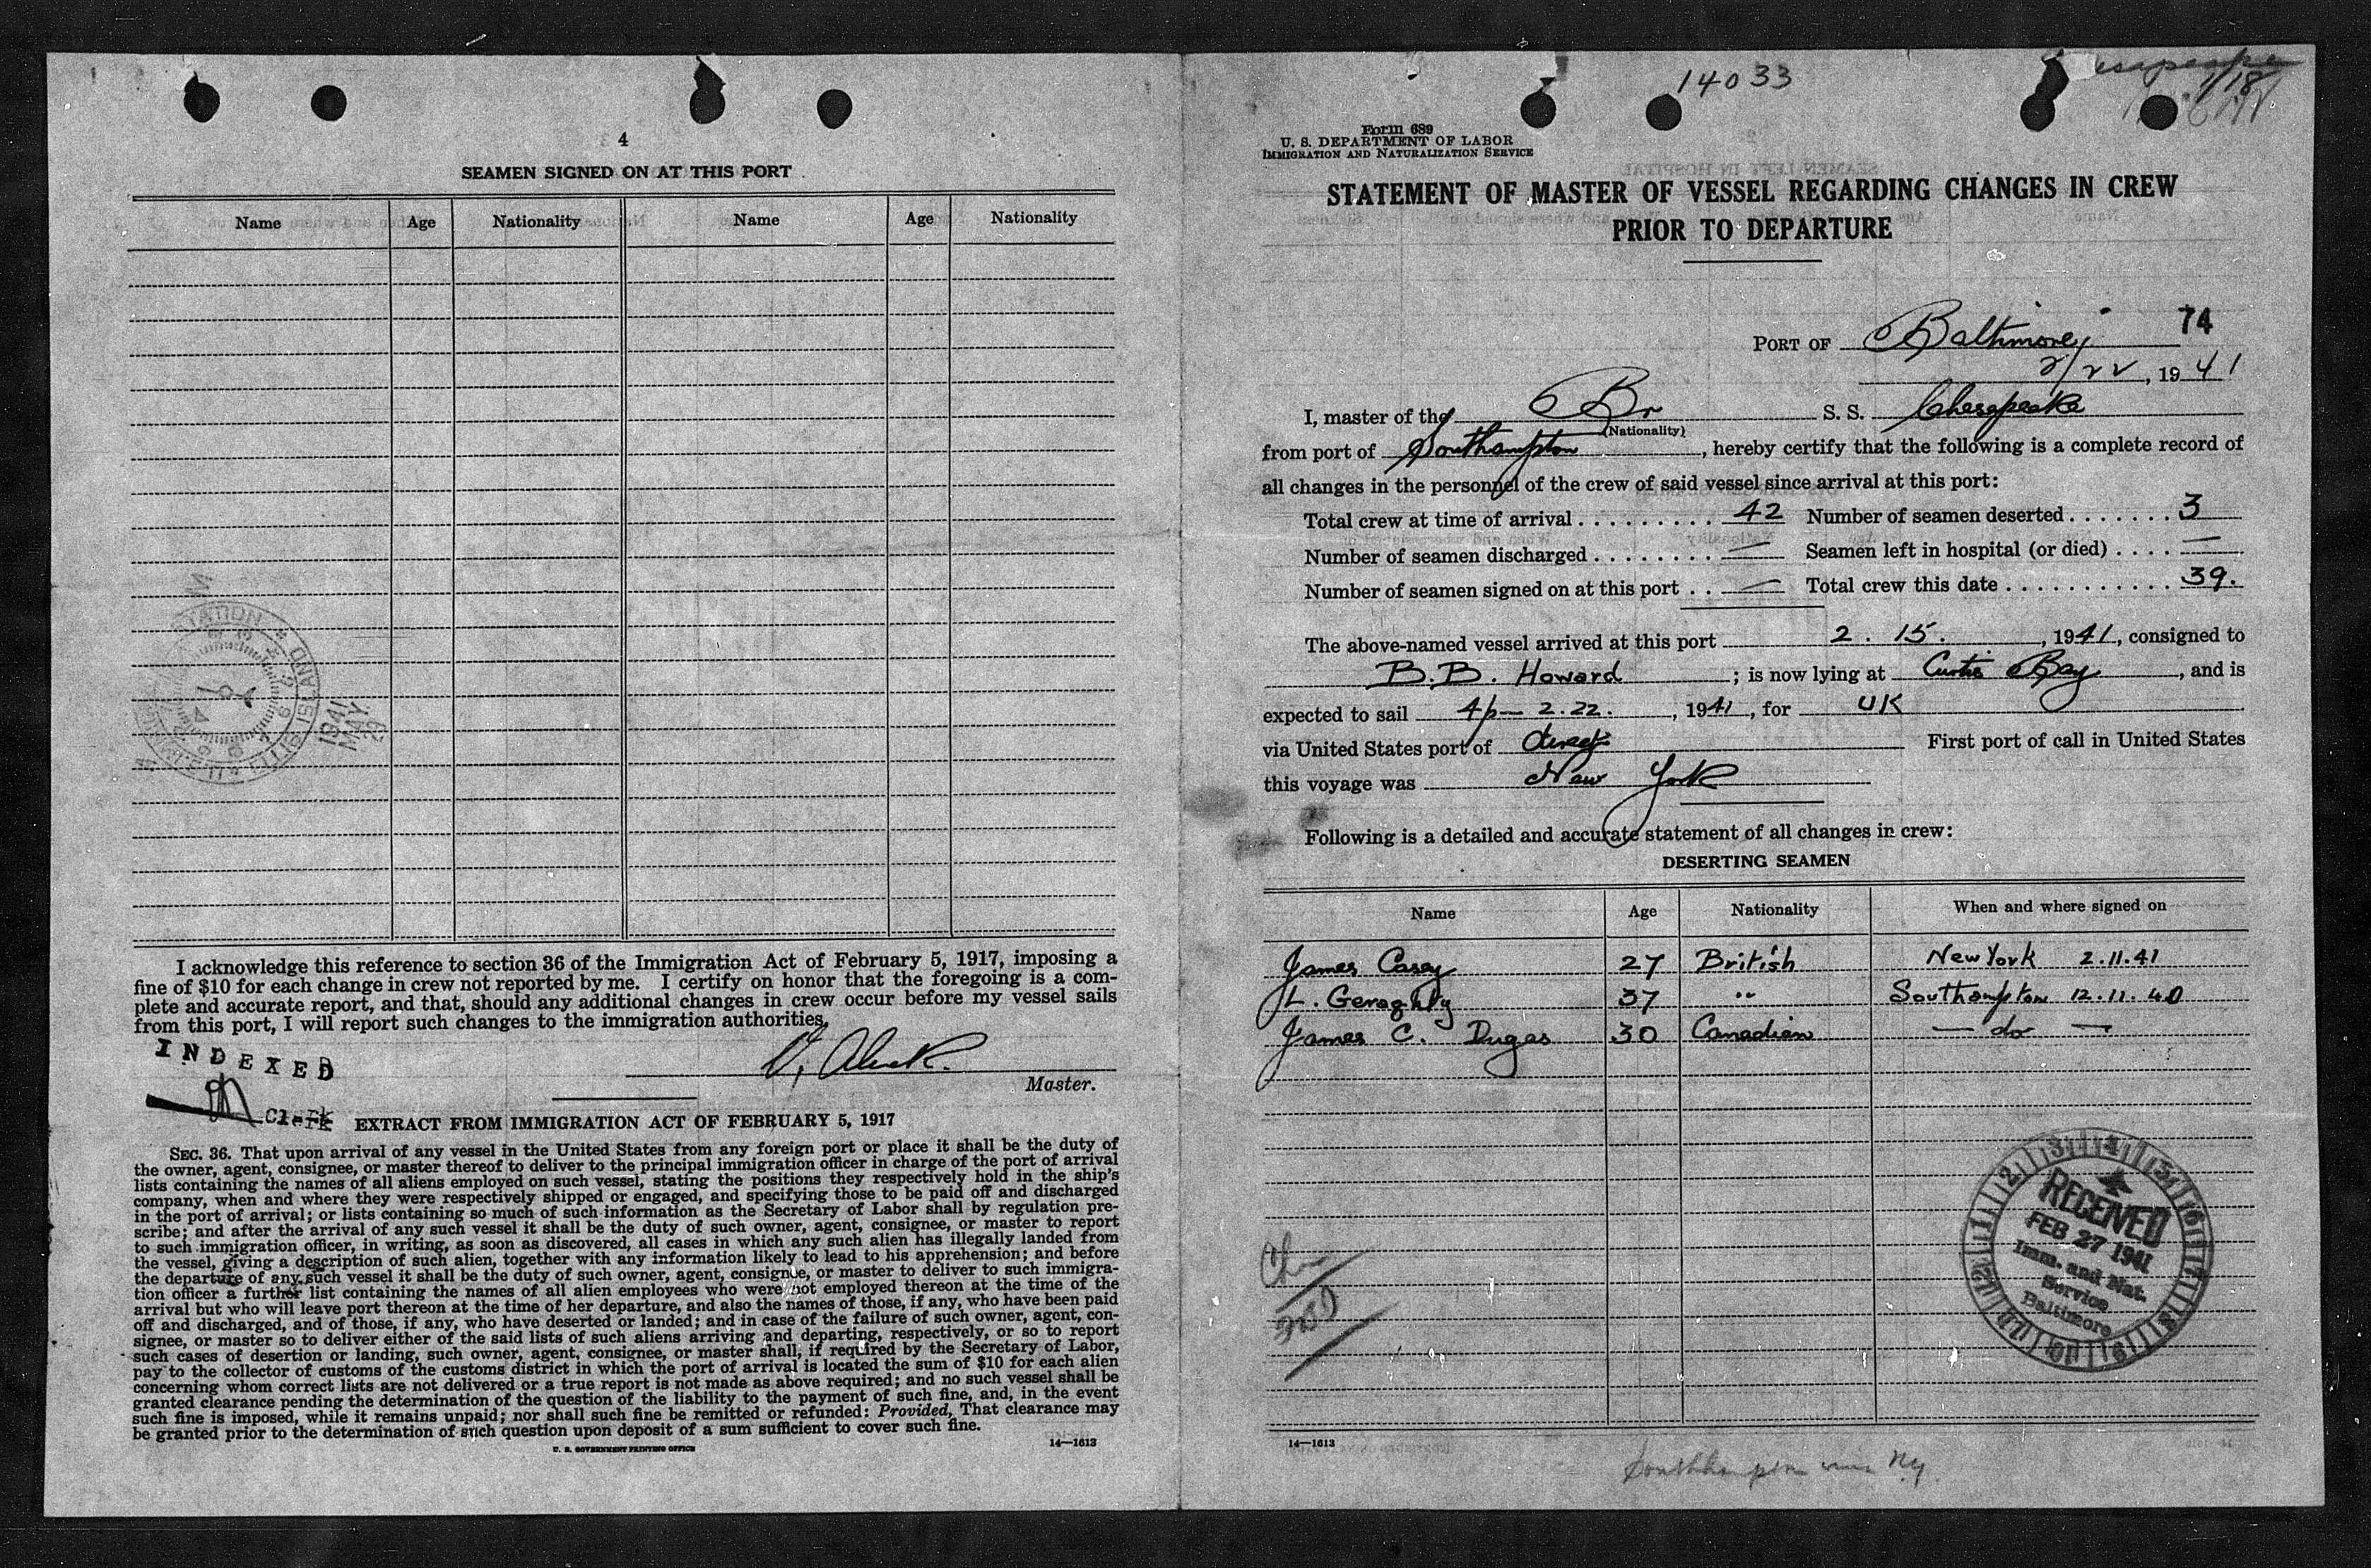 4
SEAMEN SIGNED ON AT THIS PORT
Name Age Nationality Name Age Nationality
1941 MAY 29
I acknowledge this reference to section 36 of the Immigration Act of February 5, 1917, imposing a
fine of $10 for each change in crew not reported by me. I certify on honor that the foregoing is a com-
plete and accurate report, and that, should any additional changes in crew occur before my vessel sails
from this port, I will report such changes to the immigration authorities.
INDEXED
Master.
Clerk
EXTRACT FROM IMMIGRATION ACT OF FEBRUARY 5, 1917
SEC. 36. That upon arrival of any vessel in the United States from any foreign port or place it shall be the duty of
the owner, agent, consignee, or master thereof to deliver to the principal immigration officer in charge of the port of arrival
lists containing the names of all aliens employed on such vessel, stating the positions they respectively hold in the ship's
company, when and where they were respectively shipped or engaged, and specifying those to be paid off and discharged
in the port of arrival; or lists containing so much of such information as the Secretary of Labor shall by regulation pre-
scribe; and after the arrival of any such vessel it shall be the duty of such owner, agent, consignee, or master to report
to such immigration officer, in writing, as soon as discovered, all cases in which any such alien has illegally landed from
the vessel, giving a description of such alien, together with any information likely to lead to his apprehension; and before
the departure of any such vessel it shall be the duty of such owner, agent, consignee, or master to deliver to such immigra-
tion officer a further list containing the names of all alien employees who were not employed thereon at the time of the
arrival but who will leave port thereon at the time of her departure, and also the names of those, if any, who have been paid
off and discharged, and of those, if any, who have deserted or landed; and in case of the failure of such owner, agent, con-
signee, or master so to deliver either of the said lists of such aliens arriving and departing, respectively, or so to report
such cases of desertion or landing, such owner, agent, consignee, or master shall, if required by the Secretary of Labor,
pay to the collector of customs of the customs district in which the port of arrival is located the sum of $10 for each alien
concerning whom correct lists are not delivered or a true report is not made as above required; and no such vessel shall be
granted clearance pending the determination of the question of the liability to the payment of such fine, and, in the event
such fine is imposed, while it remains unpaid; nor shall such fine be remitted or refunded: Provided, That clearance may
be granted prior to the determination of such question upon deposit of a sum sufficient to cover such fine.
U. S. GOVERNMENT PRINTING OFFICE 14—1613
14033
1/18
Form 689
U. S. DEPARTMENT OF LABOR
IMMIGRATION AND NATURALIZATION SERVICE
STATEMENT OF MASTER OF VESSEL REGARDING CHANGES IN CREW
PRIOR TO DEPARTURE
74
PORT OF Baltimore,
2/22, 1941
I, master of the Br S. S. Chesapeake
(Nationality)
from port of Southampton, hereby certify that the following is a complete record of
all changes in the personnel of the crew of said vessel since arrival at this port:
Total crew at time of arrival . . . . . . . . . 42 Number of seamen deserted . . . . . . . 3
Number of seamen discharged . . . . . . . . — Seamen left in hospital (or died) . . . . —
Number of seamen signed on at this port . . — Total crew this date . . . . . . . . . . . 39.
The above-named vessel arrived at this port 2. 15., 1941, consigned to
B.B. Howard; is now lying at Curtis Bay, and is
expected to sail 4p— 2.22., 1941, for UK
via United States port of direct First port of call in United States
this voyage was New York
Following is a detailed and accurate statement of all changes in crew:
DESERTING SEAMEN
Name Age Nationality When and where signed on
James Casey 27 British New York 2.11.41
L. Geraghty 37 " Southampton 12.11.40
James C. Dugas 30 Canadian — do —
RECEIVED
FEB 27 1941
Imm. and Nat.
Service
Baltimore
14—1613
Southampton via N.Y.